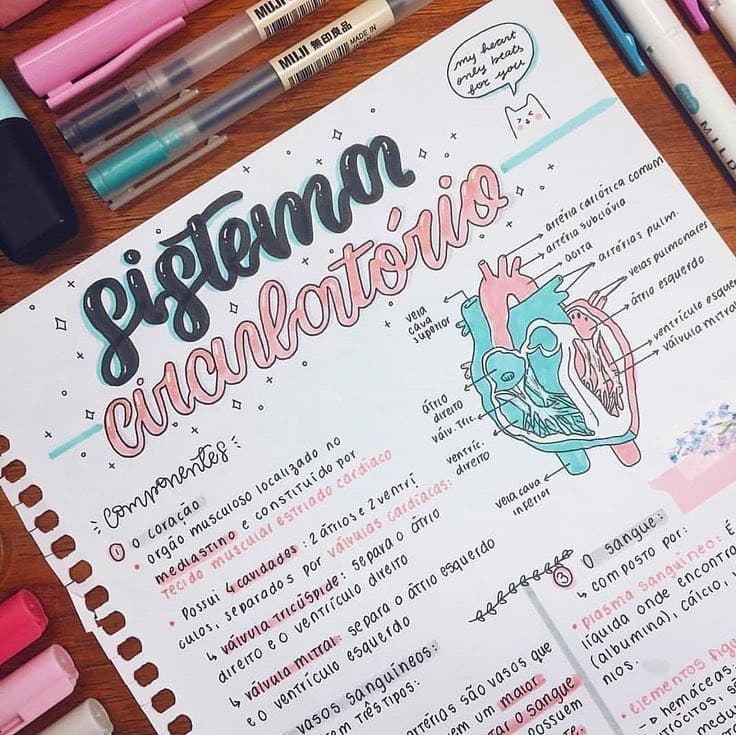 MUJI
MUJI 無印良品 MADE IN JAPAN
MILD
my heart
only beats
for you
sistema
circulatório
artéria carótida comum
artéria subclávia
aorta
artérias pulm.
veias pulmonares
átrio esquerdo
ventrículo
válvula mitral
veia
cava
superior
átrio
direito
válv. tric.
ventríc.
direito
veia cava
inferior
componentes
1 o coração
• orgão musculoso localizado no
mediastino e constituído por
tecido muscular estriado cardíaco
• Possui 4 cavidades: 2 átrios e 2 ventrí
culos, separados por válvulas cardíacas:
↳ válvula tricúspide: separa o átrio
direito e o ventrículo direito
↳ válvula mitral: separa o átrio esquerdo
e o ventrículo esquerdo
vasos sanguíneos:
três tipos:
artérias são vasos que
um maior
o sangue
possuem
3 o sangue:
↳ composto por:
• plasma sanguíneo: é
líquida onde
(albumina), cálcio,
nios.
• elementos
→ hemáceas: